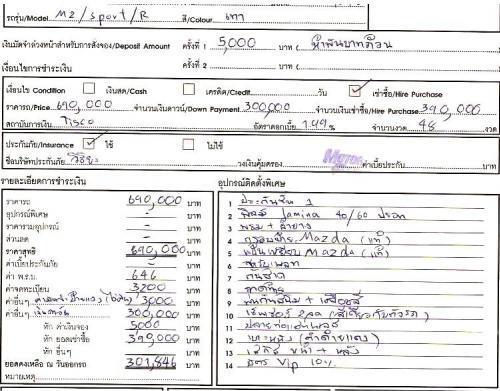 รถรุ่น/Model M2/sport/R สี/Colour เทา
เงินมัดจำล่วงหน้าสำหรับการสั่งจอง/Deposit Amount ครั้งที่ 1 5,000 บาท ( ห้าพันบาทถ้วน
เงื่อนไขการชำระเงิน ครั้งที่ 2 บาท (
เงื่อนไข Condition เงินสด/Cash เครดิต/Credit วัน เช่าซื้อ/Hire Purchase
ราคารถ/Price 690,000 จำนวนเงินดาวน์/Down Payment 300,000 จำนวนเงินเช่าซื้อ/Hire Purchase 390,000
สถาบันการเงิน Tisco อัตราดอกเบี้ย 1.49% จำนวนงวด 48 งวด
ประกันภัย/Insurance ใช้ ไม่ใช้
ชื่อบริษัทประกันภัย วิริยะ วงเงินคุ้มครอง ค่าเบี้ยประกัน บาท
รายละเอียดการชำระเงิน อุปกรณ์ติดตั้งพิเศษ
ราคารถ 690,000 บาท
อุปกรณ์พิเศษ - บาท
ราคารวมอุปกรณ์ - บาท
ส่วนลด - บาท
ราคาสุทธิ 690,000 บาท
ค่าเบี้ยประกันภัย - บาท
ค่า พ.ร.บ. 646 บาท
ค่าจดทะเบียน 3200 บาท
ค่าอื่นๆ 3000 บาท
ค่าอื่นๆ เงินดาวน์ 300,000 บาท
หัก ค่าเงินจอง 5000 บาท
หัก ยอดเช่าซื้อ 390,000 บาท
หัก อื่นๆ บาท
ยอดคงเหลือ ณ วันออกรถ 301,846 บาท
1 ประกันชั้น 1
2 ฟิล์ม lamina 40/60 ปรอท
3 พรม + ผ้ายาง
4 กรอบป้าย Mazda (แท้)
5 Mazda (แท้)
6
7 กันสาด
8 ถาดท้าย
9
10
11
12
13 หน้า + หลัง
14 บัตร Vip 10%